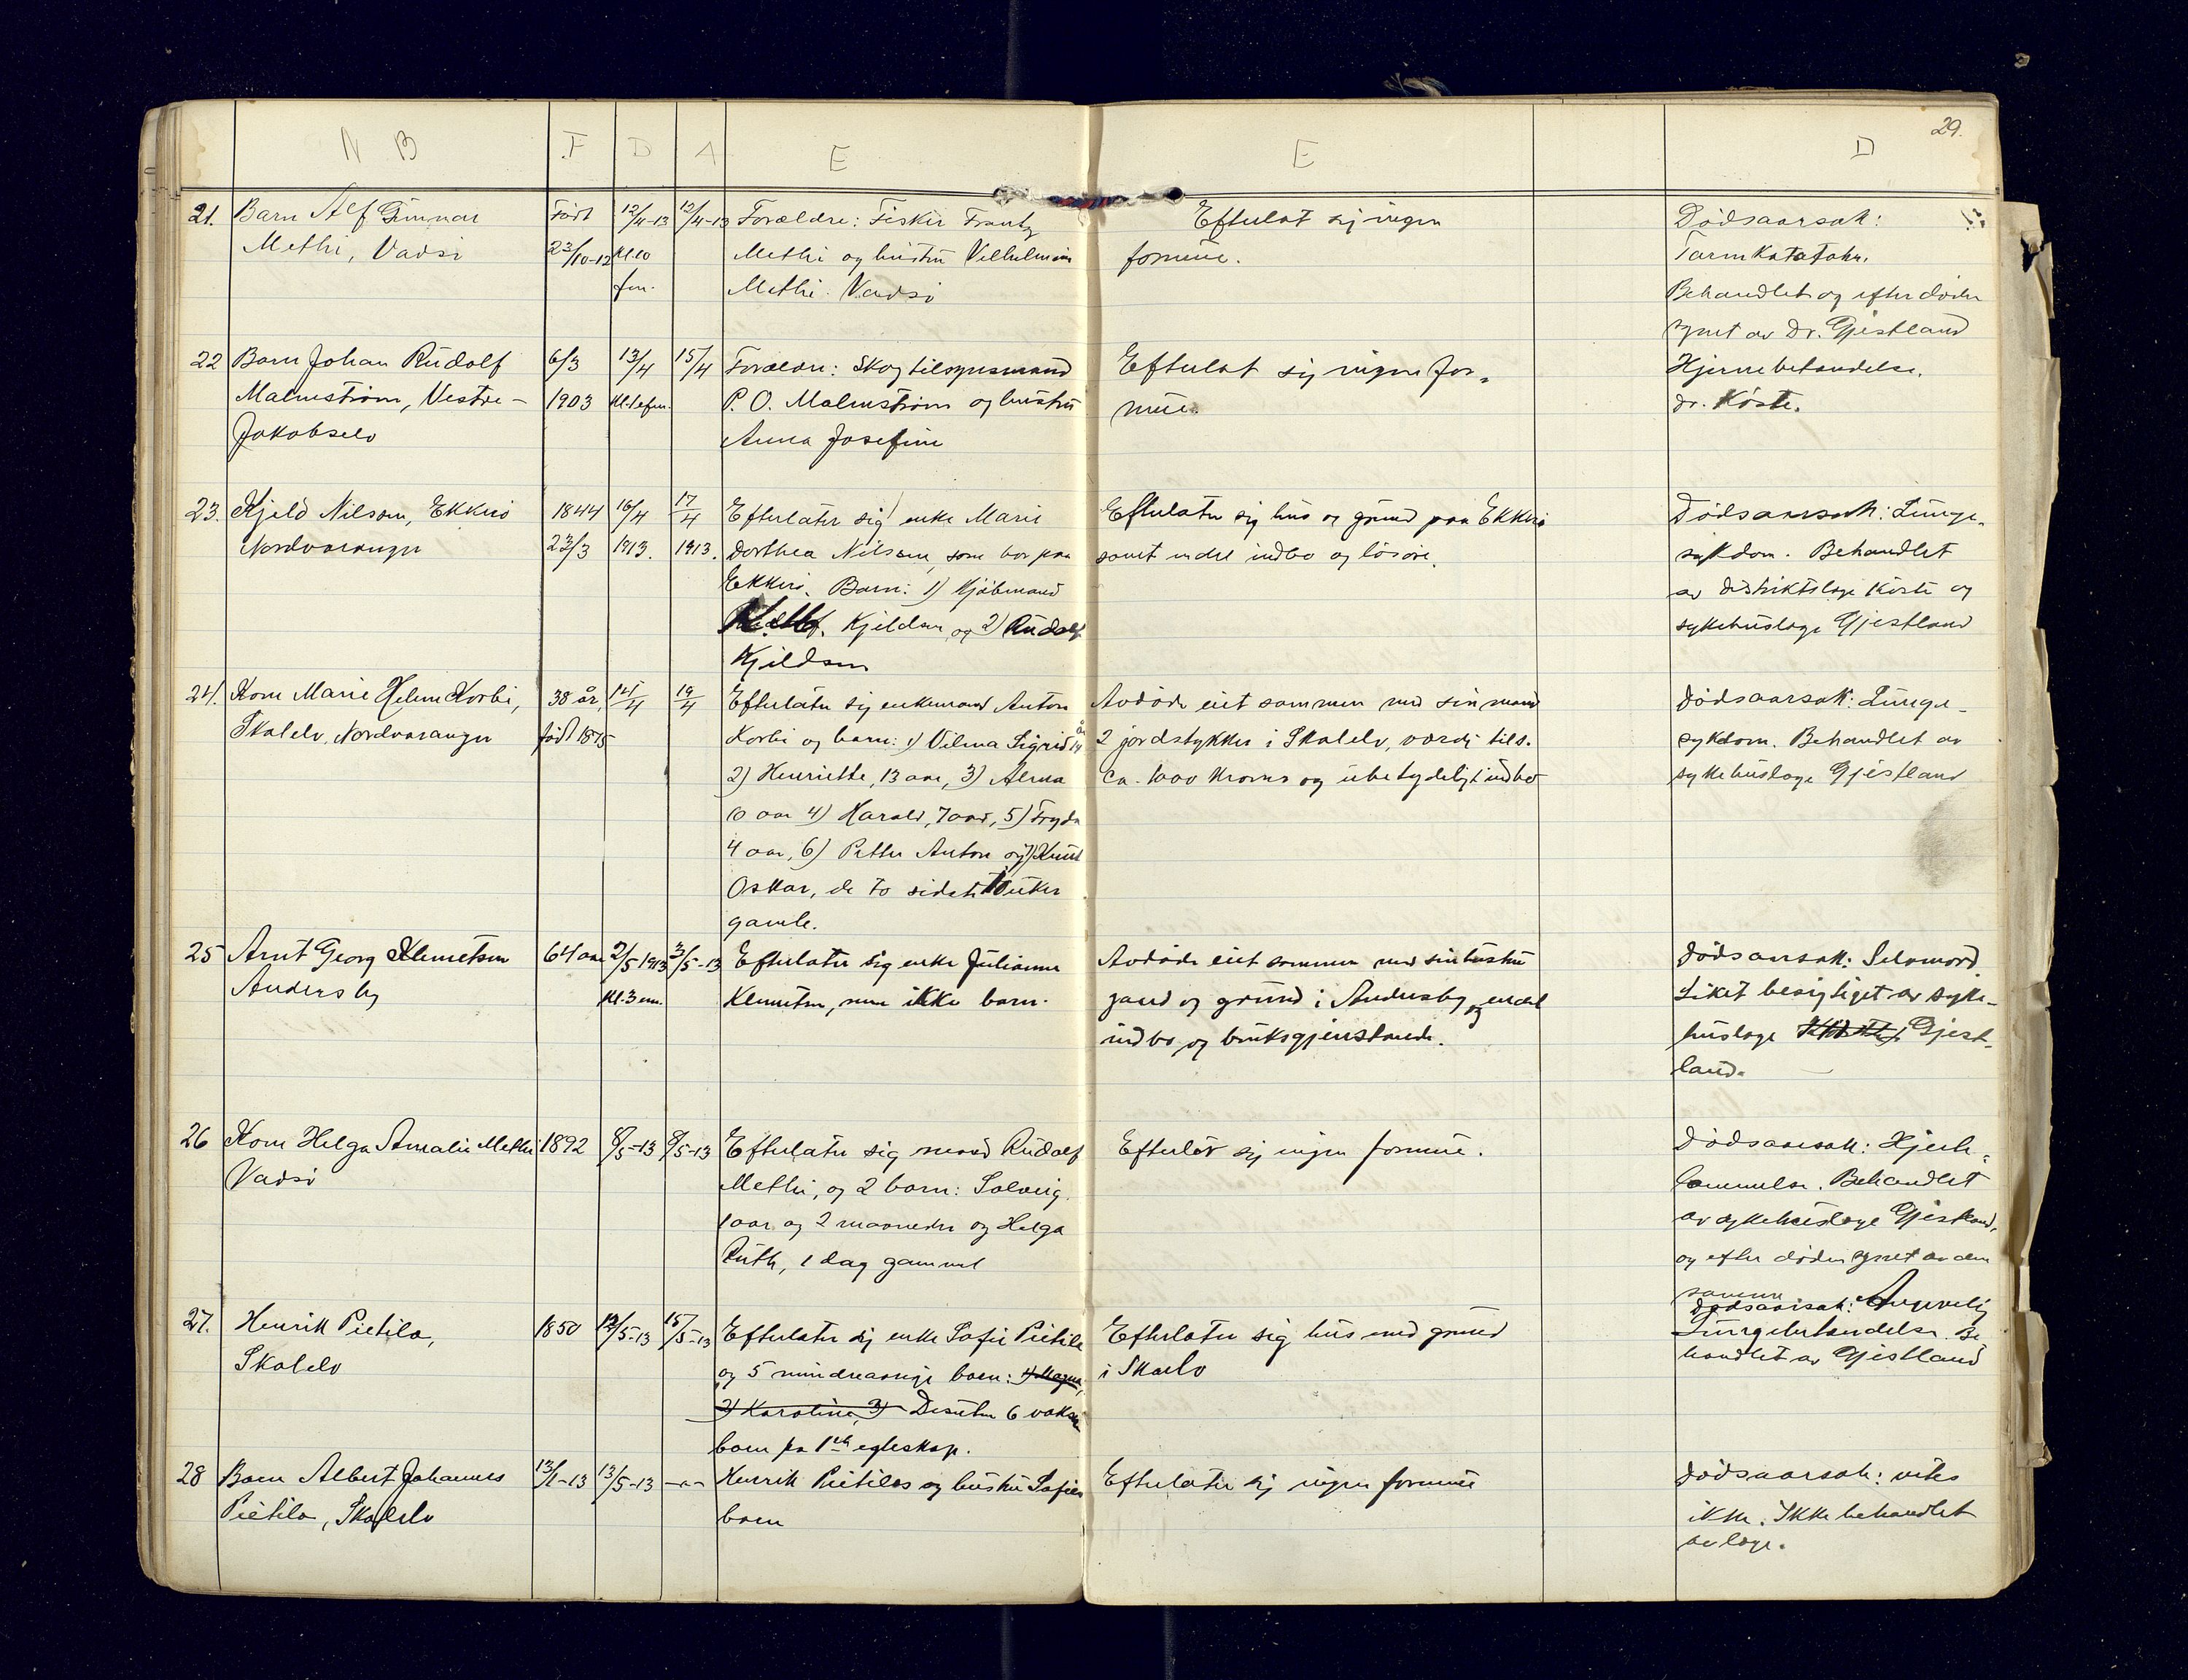 29.
N B F D A E E D
21. Barn Alf Gunnar Født 12/4-13 12/4-13 Forældre: Fisker Frantz Efterlot sig ingen Dødsaarsak:
Methi, Vadsö 23/10-12 Kl. 10 Methi og hustru Vilhelmine formue. Tarmkatatahr.
fm. Methi. Vadsö Behandlet og efter døden
synet av Dr. Gjestland
22 Barn Johan Rudolf 6/3 13/4 15/4 Forældre: Skogtilsynsmand Efterlot sig ingen for- Hjernebetændelse.
Malmström, Vestre- 1903 Kl. 1 efm. P. O. Malmström og hustru mue. dr. Köste.
Jakobselv Anna Josefine
23. Kjeld Nilsen, Ekkerö 1844 16/4 17/4 Efterlater sig enke Marie Efterlater sig hus og grund paa Ekkerö Dödsaarsak: Lunge-
Nordvaranger 23/3 1913. 1913. Dorthea Nilsen, som bor paa samt endel indbo og lösöre. sykdom. Behandlet
Ekkerö. Barn: 1) Kjöbmand av distriktslæge Köste og
Kjeldsen og 2) Rudolf sykehuslæge Gjestland
Kjeldsen
24. Kone Marie Helene Korbi, 38 år, 14/4 19/4 Efterlater sig enkemand Anton Avdöde eiet sammen med sin mand Dödsaarsak: Lunge-
Skalelv, Nordvaranger född 1875 Korbi og barn: 1) Vilma Sigrid 14 år 2 jordstykker i Skalelv, værdi tils. sykdom. Behandlet av
2) Henriette, 13 aar, 3) Alma ca. 1000 kroner og ubetydeligt indbo sykehuslæge Gjestland
10 aar 4) Harald, 7 aar, 5) Fryda
4 aar, 6) Petter Anton og 7) Knut
Oskar, de to sidste 10 uker
gamle.
25 Arnt Georg Klemetsen 64 aar 2/5 1913 3/5-13 Efterlater sig enke Julianne Avdöde eiet sammen med sin hustru Dödsaarsak: Selvmord.
Andersby Kl. 3 em. Klemetsen, men ikke barn. gaard og grund i Andersby, og endel Liket besigtiget av syke-
indbo og bruksgjenstande. huslæge Gjest-
land.
26 Kone Helga Amalie Methi 1892 8/5-13 9/5-13 Efterlater sig mand Rudolf Efterlot sig ingen formue. Dödsaarsak: Hjerte-
Vadsö Methi, og 2 barn: Solveig lammelse. Behandlet
1 aar og 2 maaneder og Helga av sykehuslæge Gjestland,
Ruth, 1 dag gammel og efter döden synet av den
samme
27. Henrik Pietila, 1850 12/5-13 15/5-13 Efterlater sig enke Sofie Pietila Efterlater sig hus med grund Dödsaarsak: Angivelig
Skalelv og 5 mindreaarige barn: 1) Magna, i Skalelv Lungebetændelse. Be
2) Karoline, 3) Desuten 6 voksne handlet av Gjestland
barn fra 1ste egteskap.
28 Barn Albert Johannes 13/1-13 13/5-13 -"- Henrik Pietilas og hustru Sofies Efterlater sig ingen formue Dödsaarsak: vites
Pietila, Skalelv barn ikke. Ikke behandlet
av læge.